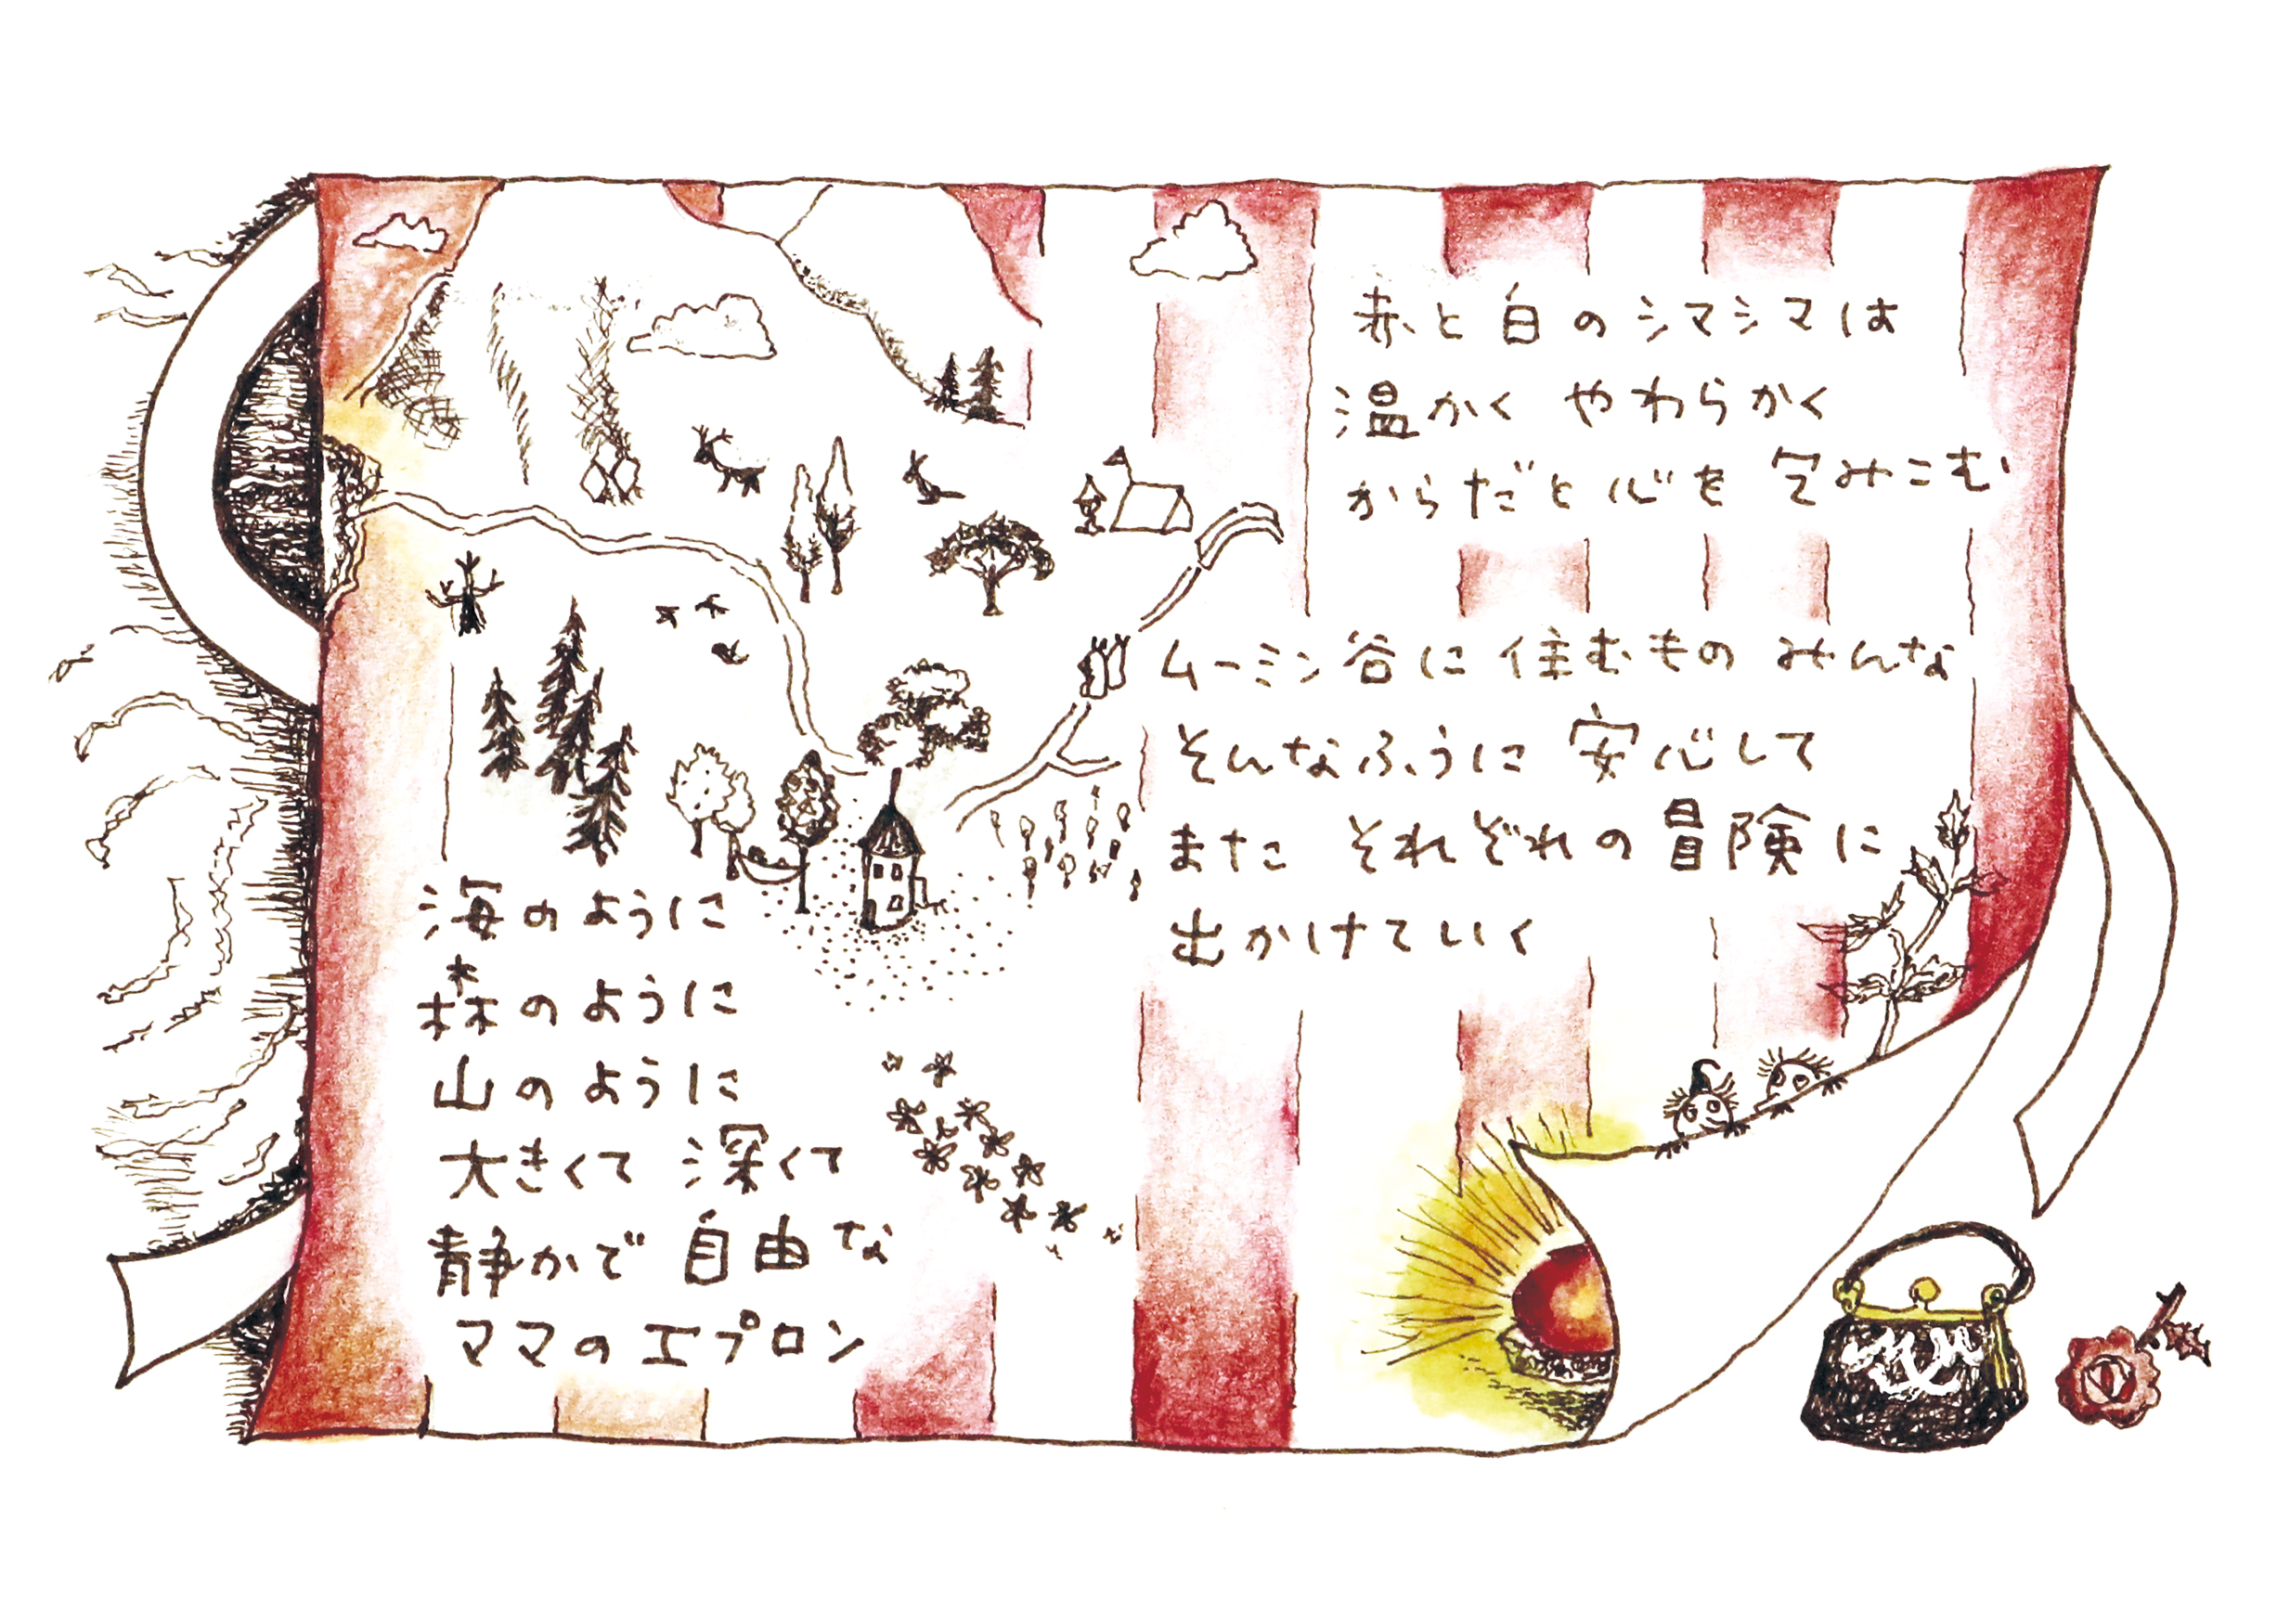 赤と白のシマシマは
温かく やわらかく
からだと心を 包みこむ
ムーミン谷に 住むもの みんな
そんなふうに 安心して
また それぞれの 冒険に
出かけていく
海のように
森のように
山のように
大きくて 深くて
静かで 自由な
ママのエプロン